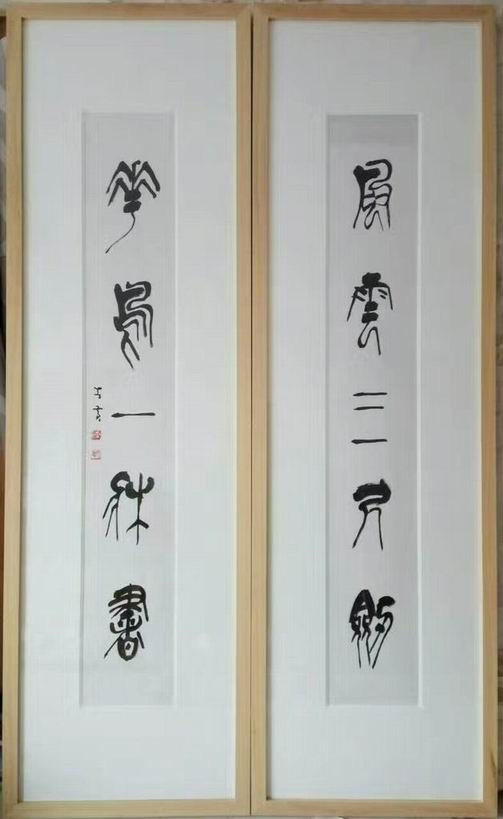 風雲三尺劍
華鳥一牀書